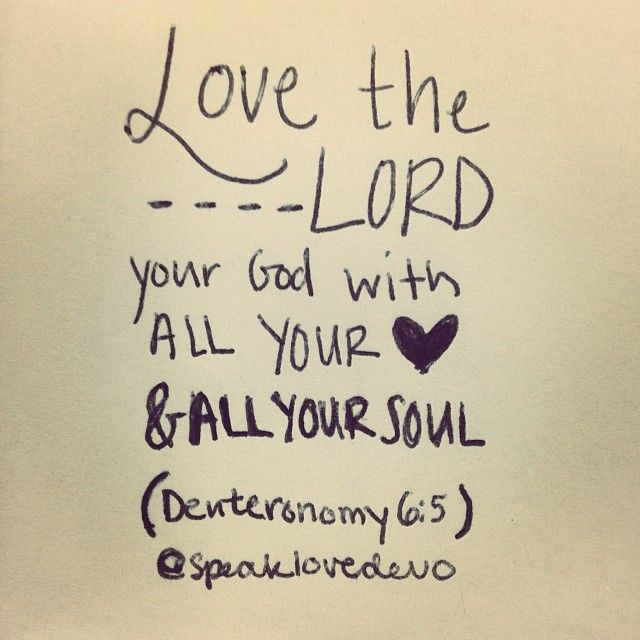 Love the
----LORD
your God with
ALL YOUR ♥
& ALL YOUR SOUL
(Deuteronomy 6:5)
@speaklovedevo